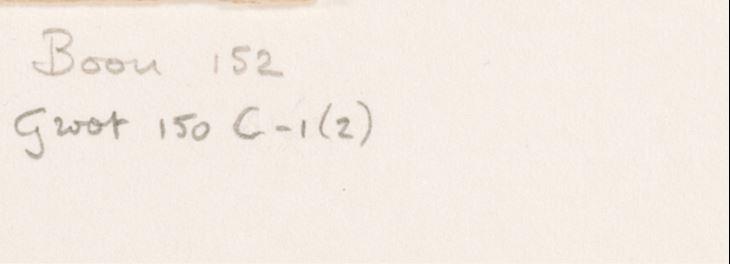 Boon 152
Groot 150 C-1(2)